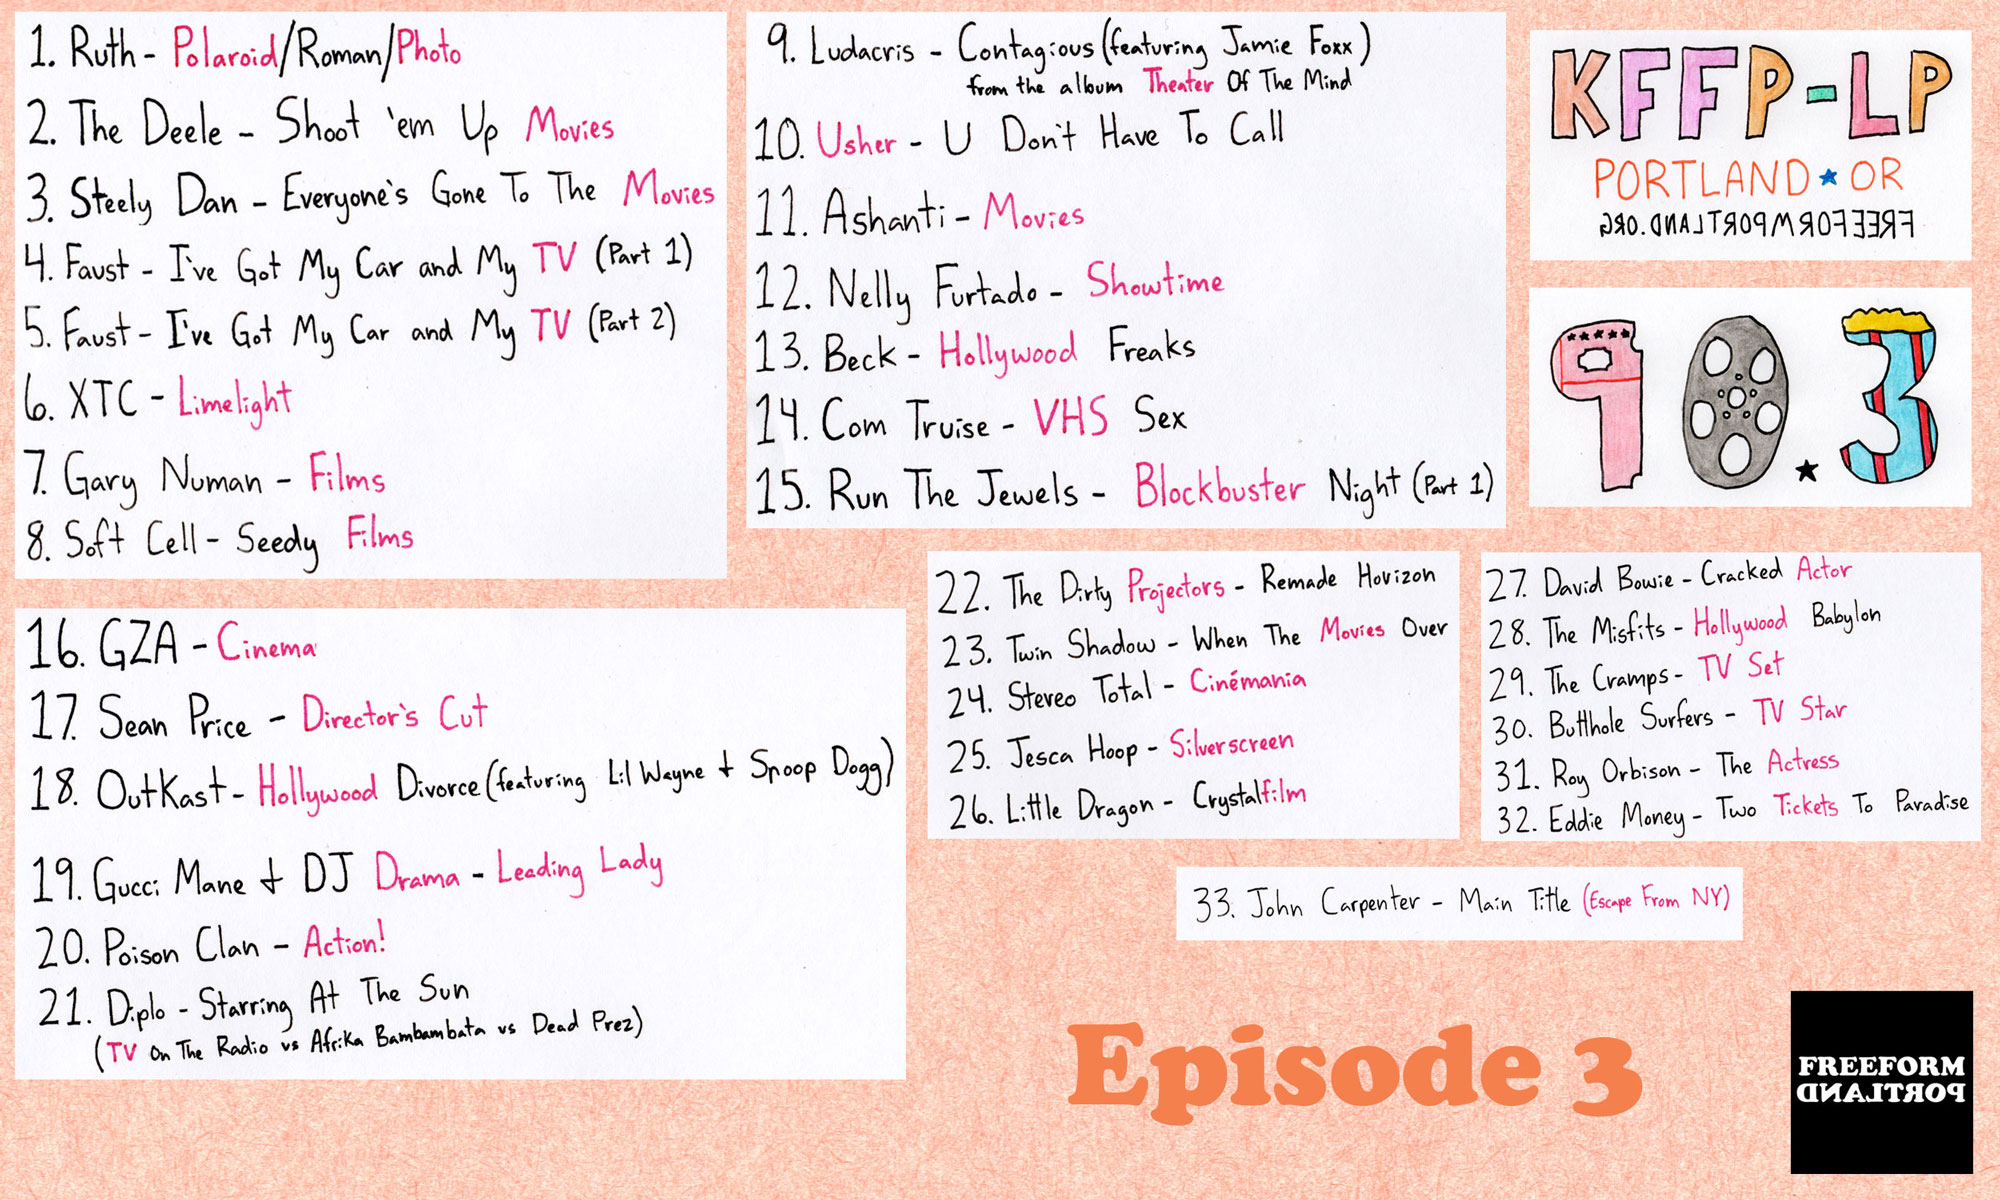 1. Ruth - Polaroid/Roman/Photo
2. The Deele - Shoot 'em Up Movies
3. Steely Dan - Everyone's Gone To The Movies
4. Faust - I've Got My Car and My TV (Part 1)
5. Faust - I've Got My Car and My TV (Part 2)
6. XTC - Limelight
7. Gary Numan - Films
8. Soft Cell - Seedy Films
9. Ludacris - Contagious (featuring Jamie Foxx)
from the album Theater Of The Mind
10. Usher - U Don't Have To Call
11. Ashanti - Movies
12. Nelly Furtado - Showtime
13. Beck - Hollywood Freaks
14. Com Truise - VHS Sex
15. Run The Jewels - Blockbuster Night (Part 1)
KFFP-LP
PORTLAND★OR
FREEFORMPORTLAND.ORG
90.3
16. GZA - Cinema
17. Sean Price - Director's Cut
18. OutKast - Hollywood Divorce (featuring Lil Wayne + Snoop Dogg)
19. Gucci Mane + DJ Drama - Leading Lady
20. Poison Clan - Action!
21. Diplo - Starring At The Sun
(TV On The Radio vs Afrika Bambambata vs Dead Prez)
22. The Dirty Projectors - Remade Horizon
23. Twin Shadow - When The Movies Over
24. Stereo Total - Cinémania
25. Jesca Hoop - Silverscreen
26. Little Dragon - Crystalfilm
27. David Bowie - Cracked Actor
28. The Misfits - Hollywood Babylon
29. The Cramps - TV Set
30. Butthole Surfers - TV Star
31. Roy Orbison - The Actress
32. Eddie Money - Two Tickets To Paradise
33. John Carpenter - Main Title (Escape From NY)
Episode 3
FREEFORM
PORTLAND